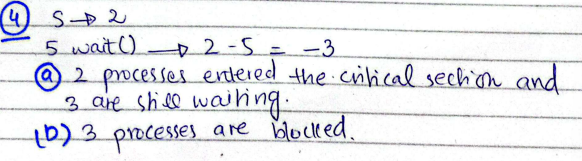 ④ S → 2
5 wait() → 2 - 5 = -3
ⓐ 2 processes entered the critical section and
3 are still waiting.
(b) 3 processes are blocked.